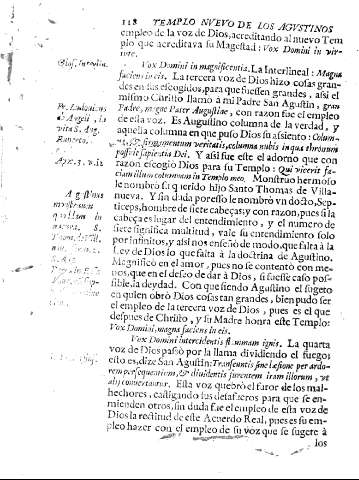 118 TEMPLO NUEVO DE LOS AGUSTINOS
empleo de la voz de Dios, acreditando al nuevo Tem
plo que acreditava su Magestad: Vox Domini in vir-
tute.
Vox Domini in magnificentia. La Interlineal: Magna
faciens in eis. La tercera voz de Dios hizo cosas gran-
des en sus escogidos, para que fuessen grandes, assi el
mismo Christo llamò à mi Padre San Agustin, gran
Padre, magne Pater Augustine, con razon fue el empleo
de esta voz. Es Augustino columna de la verdad, y
aquella columna en que puso Dios su assiento: Colum-
firmamentum veritatis, columna nubis in qua thronum
possit sapientia Dei. Y assi fue este el adorno que con
razon escogiò Dios para su Templo: Qui vicerit fa-
ciam illum columnam in Templo meo. Monstruo hermoso
le nombrò su querido hijo Santo Thomas de Villa-
nueva. Y sin duda por esso le nombrò vn docto, Sep-
ticeps, hombre de siete cabeças; y con razon, pues si la
cabeça es lugar del entendimiento, y el numero de
siete significa multitud, vale su entendimiento solo
por infinitos, y assi nos enseñò de modo, que falta à la
Ley de Dios lo que falta à la doctrina de Agustino.
Magnificò con el amor, pues no se contentò con me-
nos, que en el deseo de dar à Dios, si fuesse caso pos-
sible, la deydad. Con que siendo Agustino el sugeto
en quien obrò Dios cosas tan grandes, bien pudo ser
el empleo de la tercera voz de Dios, pues es el que
despues de Christo, y su Madre honra este Templo:
Vox Domini, magna faciens in eis.
Vox Domini intercidentis flammam ignis. La quarta
voz de Dios passò por la llama dividiendo el fuego:
esto es, dize San Agustin: Transeuntis sine læsione per ardo-
rem persequentium, & dividentis furentem iram illorum, vt
alij converterentur. Esta voz quebrò el furor de los mal-
hechores, castigando sus desafueros para que se en-
mienden otros, sin duda fue el empleo de esta voz de
Dios la rectitud de este Acuerdo Real, pues es su em-
pleo hazer con el empleo de su voz que se sugete à
los
Glos. interlin.
Fr. Ludovicus
de Angeli, in
vita S. Aug.
Apc. 3. v. 12